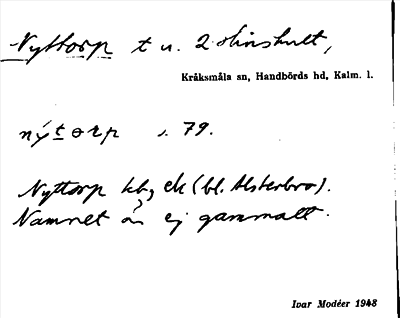 Nyttorp t u. 2 Hinshult,
Kråksmåla sn, Handbörds hd, Kalm. l.
nýtorp s. 79.
Nyttorp kb, ek (bl. Alsterbro).
Namnet är ej gammalt.
Ivar Modéer 1948